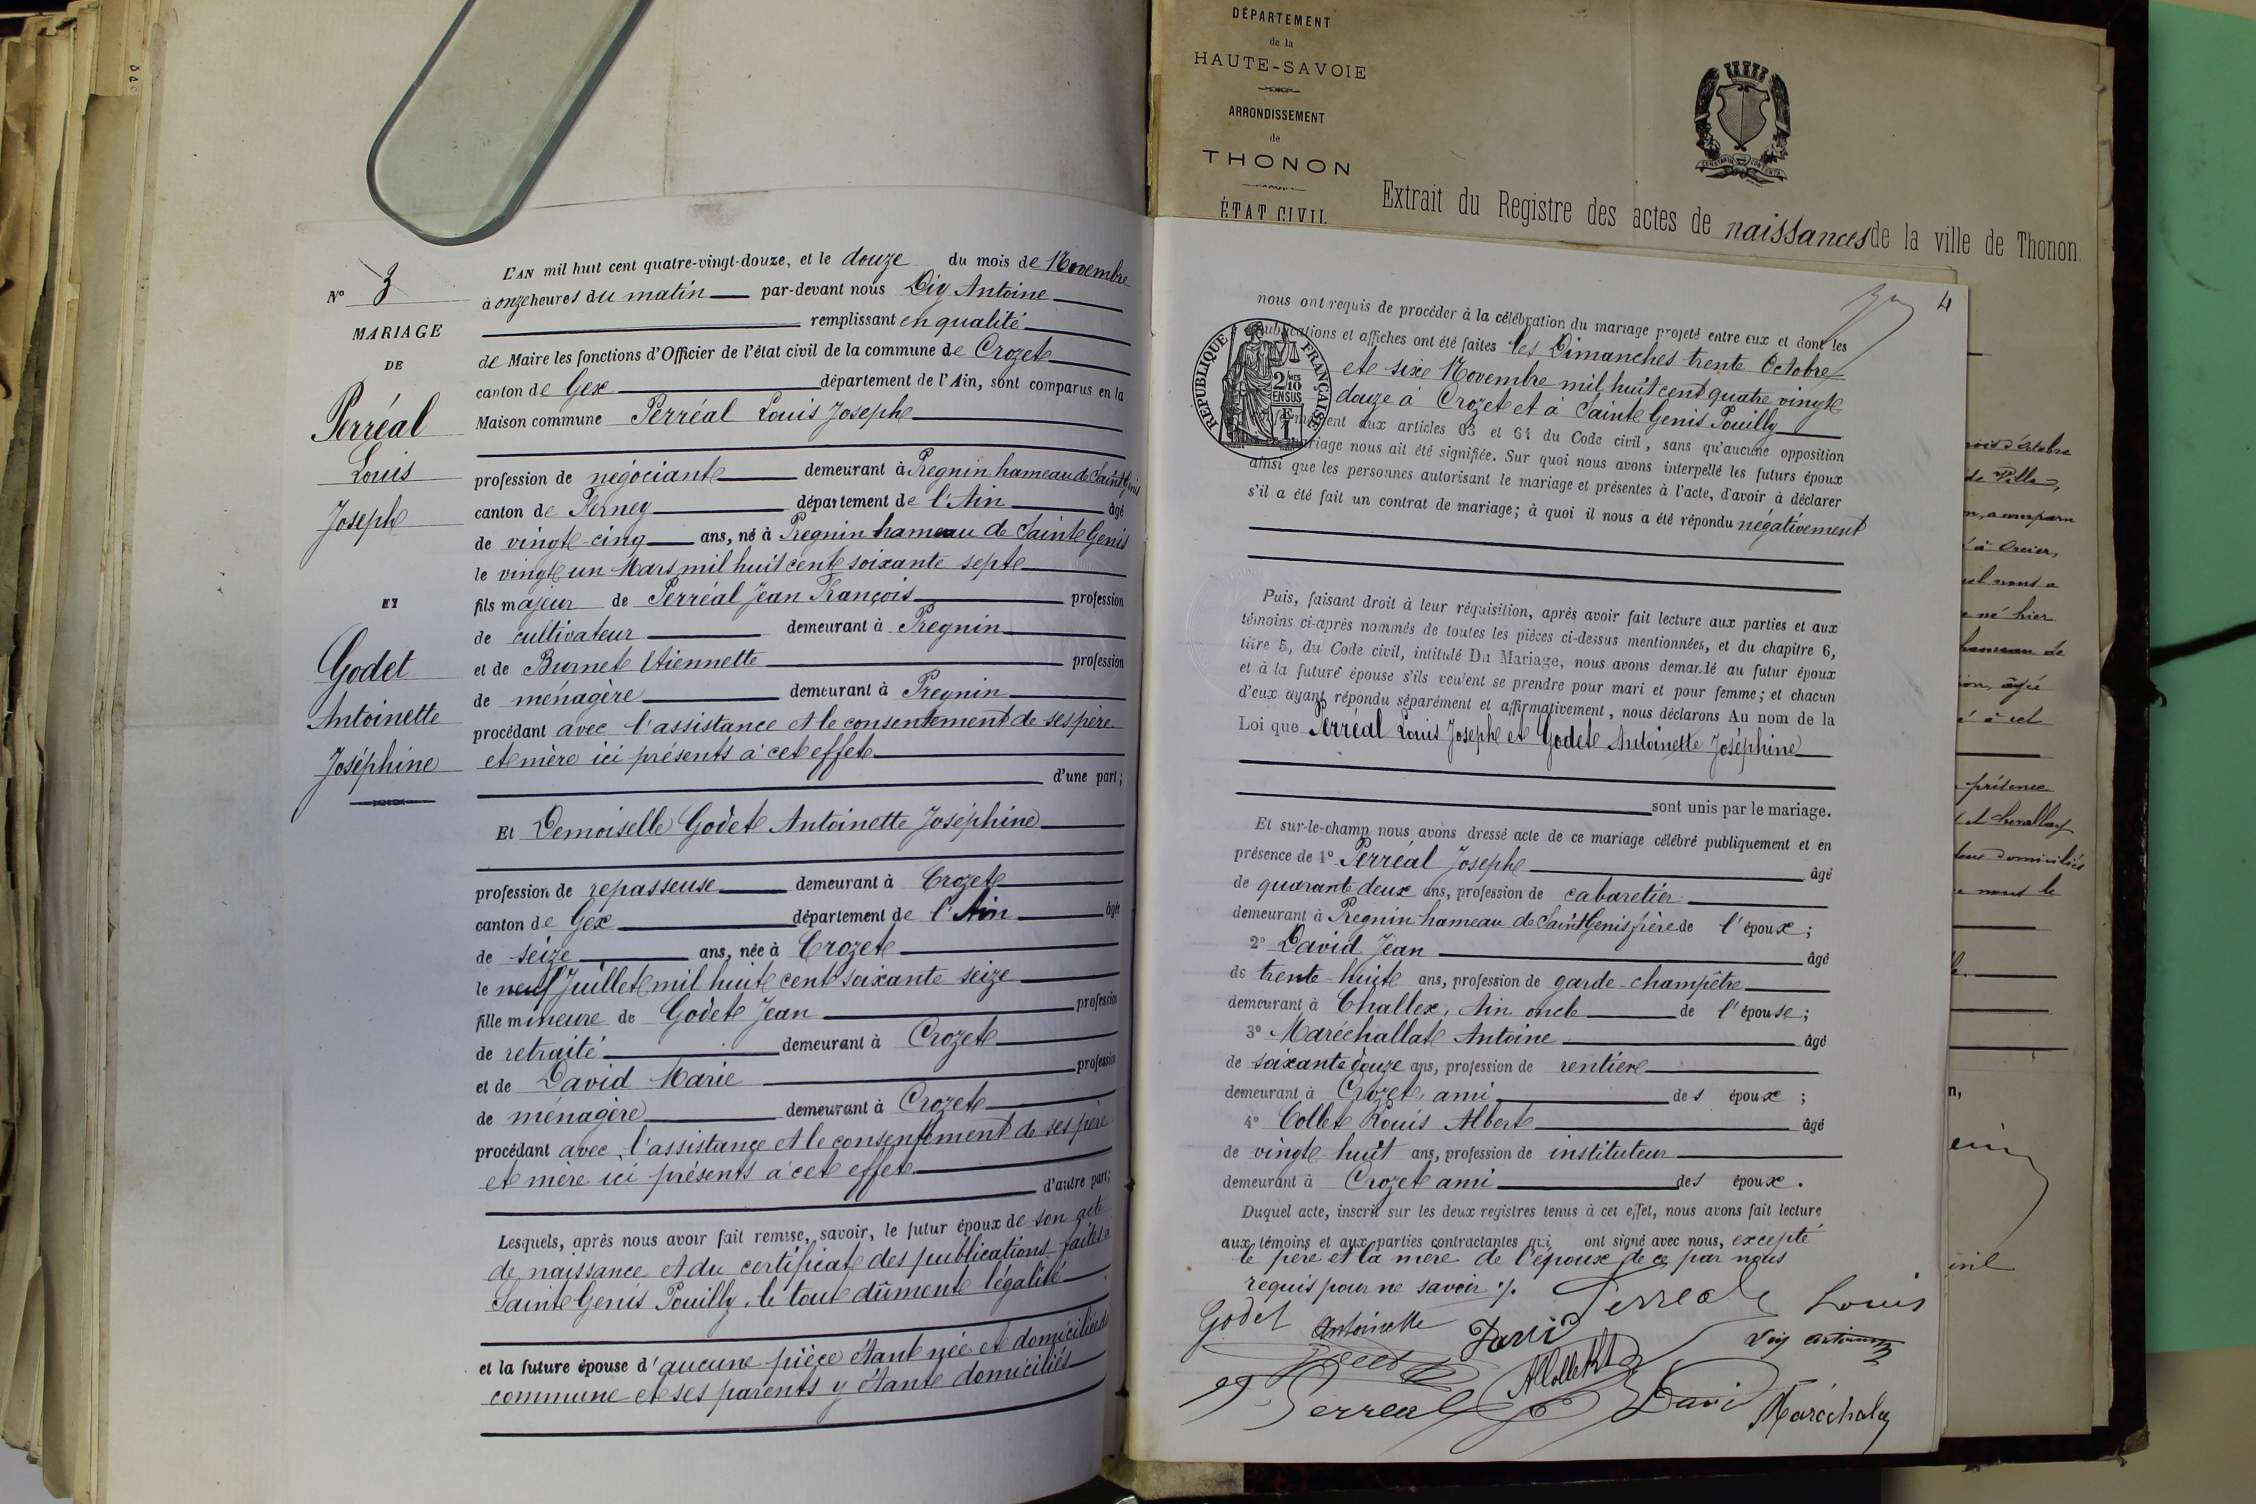 N° 3
MARIAGE
DE
Perréal
Louis
Joseph
ET
Godet
Antoinette
Joséphine
L'AN mil huit cent quatre-vingt-douze, et le douze du mois de Novembre
à onze heures du matin par-devant nous Dig Antoine
remplissant en qualité
de Maire les fonctions d'Officier de l'état civil de la commune de Crozet
canton de Gex département de l'Ain, sont comparus en la
Maison commune Perréal Louis Joseph
profession de négociant demeurant à Pregnin hameau de Saint Genis
canton de Ferney département de l'Ain âgé
de vingt-cinq ans, né à Pregnin hameau de Saint Genis
le vingt un Mars mil huit cent soixante sept
fils majeur de Perréal Jean François profession
de cultivateur demeurant à Pregnin
et de Burnet Etiennette profession
de ménagère demeurant à Pregnin
procédant avec l'assistance et le consentement de ses père
et mère ici présents à cet effet
d'une part;
Et Demoiselle Godet Antoinette Joséphine
profession de repasseuse demeurant à Crozet
canton de Gex département de l'Ain âgée
de seize ans, née à Crozet
le neuf Juillet mil huit cent soixante seize
fille mineure de Godet Jean profession
de retraité demeurant à Crozet
et de David Marie profession
de ménagère demeurant à Crozet
procédant avec l'assistance et le consentement de ses père
et mère ici présents à cet effet
d'autre part;
Lesquels, après nous avoir fait remise, savoir, le futur époux de son acte
de naissance et du certificat des publications faites à
Saint Genis Pouilly, le tout dûment légalisé
et la future épouse d'aucune pièce étant née et domiciliée
commune et ses parents y étant domiciliés
DÉPARTEMENT
de la
HAUTE-SAVOIE
ARRONDISSEMENT
de
THONON
ÉTAT CIVIL
Extrait du Registre des actes de naissances de la ville de Thonon
4
nous ont requis de procéder à la célébration du mariage projeté entre eux et dont les
publications et affiches ont été faites les Dimanches trente Octobre
et six Novembre mil huit cent quatre vingt
douze à Crozet et à Saint Genis Pouilly
RÉPUBLIQUE FRANÇAISE
2/10 EN SUS
aux articles 63 et 64 du Code civil, sans qu'aucune opposition
mariage nous ait été signifiée. Sur quoi nous avons interpellé les futurs époux
ainsi que les personnes autorisant le mariage et présentes à l'acte, d'avoir à déclarer
s'il a été fait un contrat de mariage; à quoi il nous a été répondu négativement
Puis, faisant droit à leur réquisition, après avoir fait lecture aux parties et aux
témoins ci-après nommés de toutes les pièces ci-dessus mentionnées, et du chapitre 6,
titre 5, du Code civil, intitulé Du Mariage, nous avons demandé au futur époux
et à la future épouse s'ils veulent se prendre pour mari et pour femme; et chacun
d'eux ayant répondu séparément et affirmativement, nous déclarons Au nom de la
Loi que Perréal Louis Joseph et Godet Antoinette Joséphine
sont unis par le mariage.
Et sur-le-champ nous avons dressé acte de ce mariage célébré publiquement et en
présence de 1° Perréal Joseph âgé
de quarante deux ans, profession de cabaretier
demeurant à Pregnin hameau de Saint Genis frère de l'époux;
2° David Jean âgé
de trente-huit ans, profession de garde-champêtre
demeurant à Challex, Ain oncle de l'épouse;
3° Maréchallat Antoine âgé
de soixante douze ans, profession de rentier
demeurant à Crozet, ami des époux;
4° Collet Louis Albert âgé
de vingt huit ans, profession de instituteur
demeurant à Crozet ami des époux.
Duquel acte, inscrit sur les deux registres tenus à cet effet, nous avons fait lecture
aux témoins et aux parties contractantes qui ont signé avec nous, excepté
le père et la mère de l'époux de ce par nous
requis pour ne savoir ./.
Godet Antoinette Perreal Louis
Perreal David